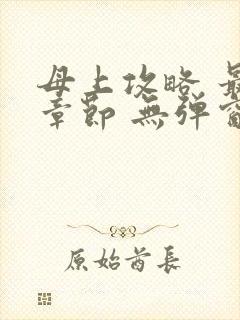 母上攻略 最
章節 無彈窗
原始酋長